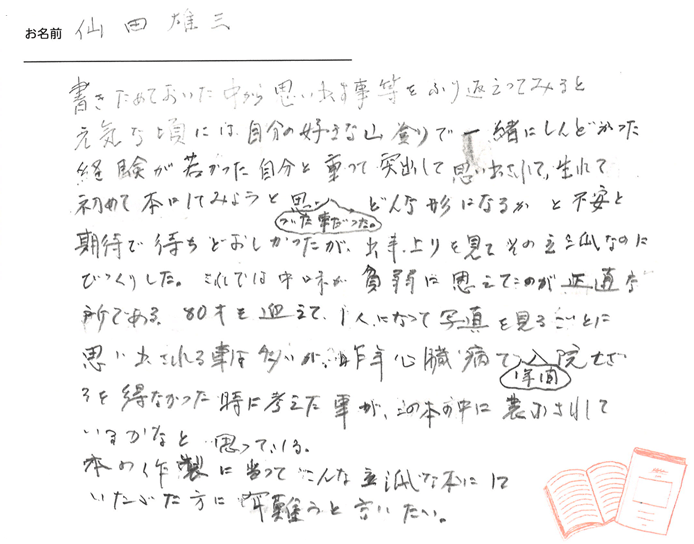 お名前 仙田雄三
書きためておいた中から思い出す事等をふり返ってみると
元気な頃には自分の好きな山登りで一緒にしんどかった
経験が若かった自分と重って突出して思い出されて、生れて
初めて本にしてみようと思い どんな形になるか と不安と
ついた事だった。
期待で待ちどおしかったが、出来上りを見てその立派なのに
びっくりした。これでは中味が貧弱に思えてのが正直な
所である。80才を迎えて、1人になって写真を見るごとに
思い出される事は多いが、昨年心臓病で入院せざ
1年間
るを得なかった時に考えた事が、この本の中に表示されて
いるかなと 思っている。
本の作製に当ってこんな立派な本にして
いただいた方に有難うと言いたい。